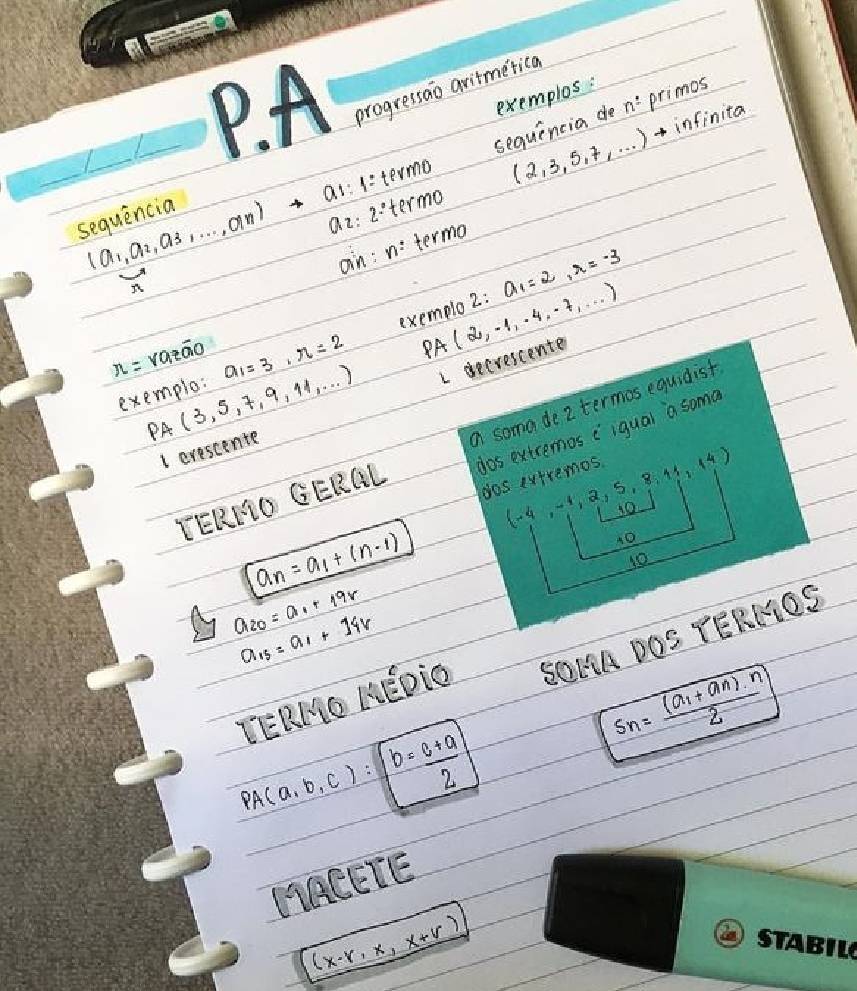 P.A
progressão aritmética
sequência
(a1, a2, a3, ..., an) → a1: 1º termo
r
a2: 2º termo
an: nº termo
exemplos:
sequência de nº primos
(2, 3, 5, 7, ...) → infinita
r = razão
exemplo: a1 = 3, r = 2
PA (3, 5, 7, 9, 11, ...)
crescente
exemplo 2: a1 = 2, r = -3
PA (2, -1, -4, -7, ...)
decrescente
a soma de 2 termos equidist.
dos extremos é igual à soma
dos extremos.
(-4, -1, 2, 5, 8, 11, 14)
10
10
10
TERMO GERAL
an = a1 + (n-1)
a20 = a1 + 19r
a15 = a1 + 14r
TERMO MÉDIO
PA(a, b, c): b = c+a
2
SOMA DOS TERMOS
Sn = (a1 + an).n
2
MACETE
(x-r, x, x+r)
STABILO